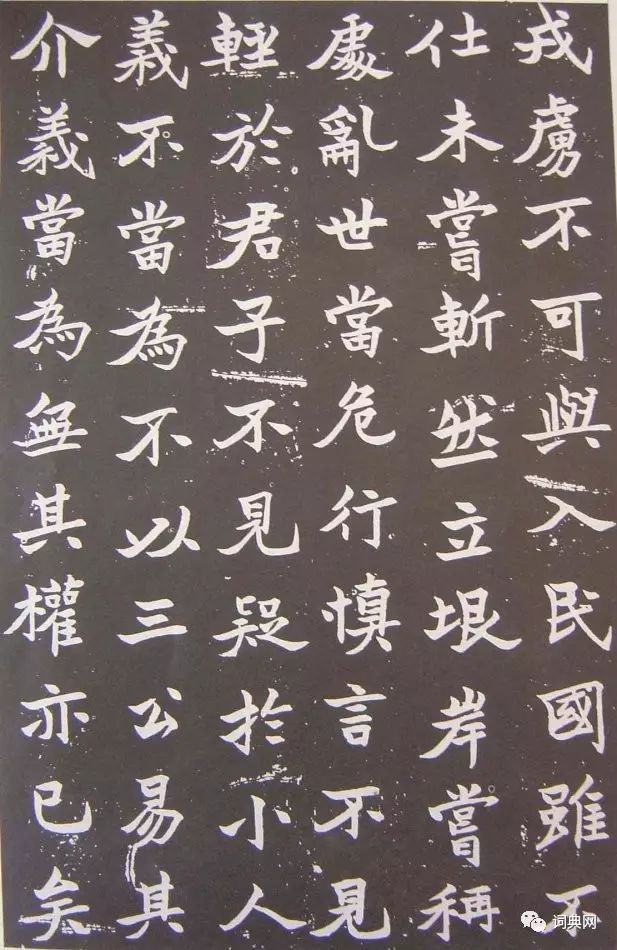 戎虜不可與入民國雖不
仕未嘗斬然立垠岸嘗稱
處亂世當危行慎言不見
輕於君子不見疑於小人
義不當為不以三公易其
介義當為無其權亦已矣
词典网